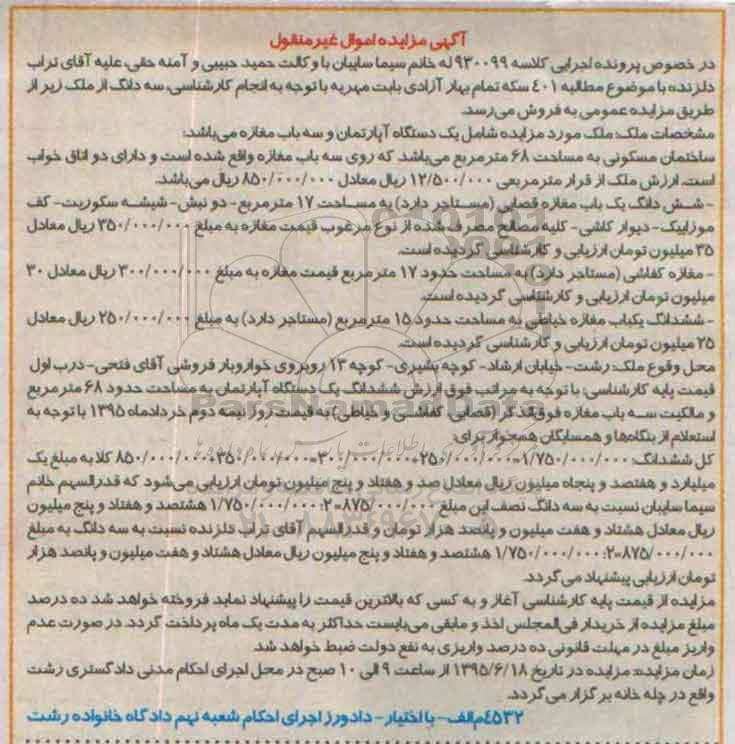 آگهی مزایده اموال غیرمنقول
در خصوص پرونده اجرایی کلاسه ۹۳۰۰۹۹ له خانم سیما سایبان با وکالت حمید حبیبی و آمنه حقی، علیه آقای تراب
دلزنده با موضوع مطالبه ٤۰۱ سکه تمام بهار آزادی بابت مهریه با توجه به انجام کارشناسی، سه دانگ از ملک زیر از
طریق مزایده عمومی به فروش می‌رسد.
مشخصات ملک: ملک مورد مزایده شامل یک دستگاه آپارتمان و سه باب مغازه می‌باشد:
ساختمان مسکونی به مساحت ۶۸ مترمربع می‌باشد که روی سه باب مغازه واقع شده است و دارای دو اتاق خواب
است. ارزش ملک از قرار مترمربعی ۱۲/۵۰۰/۰۰۰ ریال معادل ۸۵۰/۰۰۰/۰۰۰ ریال می‌باشد.
- شش دانگ یک باب مغازه قصابی (مستاجر دارد) به مساحت ۱۷ مترمربع- دو نبش- شیشه سکوریت- کف
موزاییک- دیوار کاشی- کلیه مصالح مصرف شده از نوع مرغوب قیمت مغازه به مبلغ ۳۵۰/۰۰۰/۰۰۰ ریال معادل
۳۵ میلیون تومان ارزیابی و کارشناسی گردیده است.
- مغازه کفاشی (مستاجر دارد) به مساحت حدود ۱۷ مترمربع قیمت مغازه به مبلغ ۳۰۰/۰۰۰/۰۰۰ ریال معادل ۳۰
میلیون تومان ارزیابی و کارشناسی گردیده است.
- ششدانگ یکباب مغازه خیاطی به مساحت حدود ۱۵ مترمربع (مستاجر دارد) به مبلغ ۲۵۰/۰۰۰/۰۰۰ ریال معادل
۲۵ میلیون تومان ارزیابی و کارشناسی گردیده است.
محل وقوع ملک: رشت- خیابان ارشاد- کوچه بشیری- کوچه ۱۳ روبروی خواروبار فروشی آقای فتحی- درب اول
قیمت پایه کارشناسی: با توجه به مراتب فوق ارزش ششدانگ یک دستگاه آپارتمان به مساحت حدود ۶۸ مترمربع
و مالکیت سه باب مغازه فوق‌الذکر (قصابی، کفاشی و خیاطی) به قیمت روز نیمه دوم خردادماه ۱۳۹۵ با توجه به
استعلام از بنگاه‌ها و همسایگان همجوار برای:
کل ششدانگ: ۱/۷۵۰/۰۰۰/۰۰۰=۲۵۰/۰۰۰/۰۰۰+۳۰۰/۰۰۰/۰۰۰+۳۵۰/۰۰۰/۰۰۰+۸۵۰/۰۰۰/۰۰۰ کلا به مبلغ یک
میلیارد و هفتصد و پنجاه میلیون ریال معادل صد و هفتاد و پنج میلیون تومان ارزیابی می‌شود که قدرالسهم خانم
سیما سایبان نسبت به سه دانگ نصف این مبلغ ۸۷۵/۰۰۰/۰۰۰=۲:۱/۷۵۰/۰۰۰/۰۰۰ هشتصد و هفتاد و پنج میلیون
ریال معادل هشتاد و هفت میلیون و پانصد هزار تومان و قدرالسهم آقای تراب دلزنده نسبت به سه دانگ به مبلغ
۸۷۵/۰۰۰/۰۰۰=۲:۱/۷۵۰/۰۰۰/۰۰۰ هشتصد و هفتاد و پنج میلیون ریال معادل هشتاد و هفت میلیون و پانصد هزار
تومان ارزیابی پیشنهاد می‌گردد.
مزایده از قیمت پایه کارشناسی آغاز و به کسی که بالاترین قیمت را پیشنهاد نماید فروخته خواهد شد ده درصد
مبلغ مزایده از خریدار فی‌المجلس اخذ و مابقی می‌بایست حداکثر به مدت یک ماه پرداخت گردد. در صورت عدم
واریز مبلغ در مهلت قانونی ده درصد واریزی به نفع دولت ضبط خواهد شد.
زمان مزایده: مزایده در تاریخ ۱۳۹۵/۶/۱۸ از ساعت ۹ الی ۱۰ صبح در محل اجرای احکام مدنی دادگستری رشت
واقع در چله خانه برگزار می‌گردد.
٤۵۳۲م‌الف- بااختیار- دادورز اجرای احکام شعبه نهم دادگاه خانواده رشت
ParsNamadData